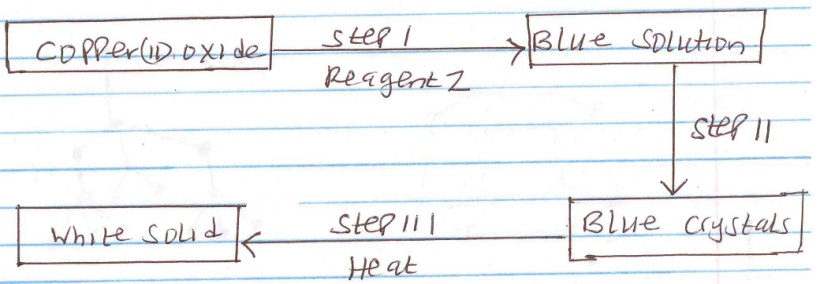 Copper(II).oxide
Step I
Reagent Z
Blue solution
Step II
Blue crystals
Step III
Heat
White solid